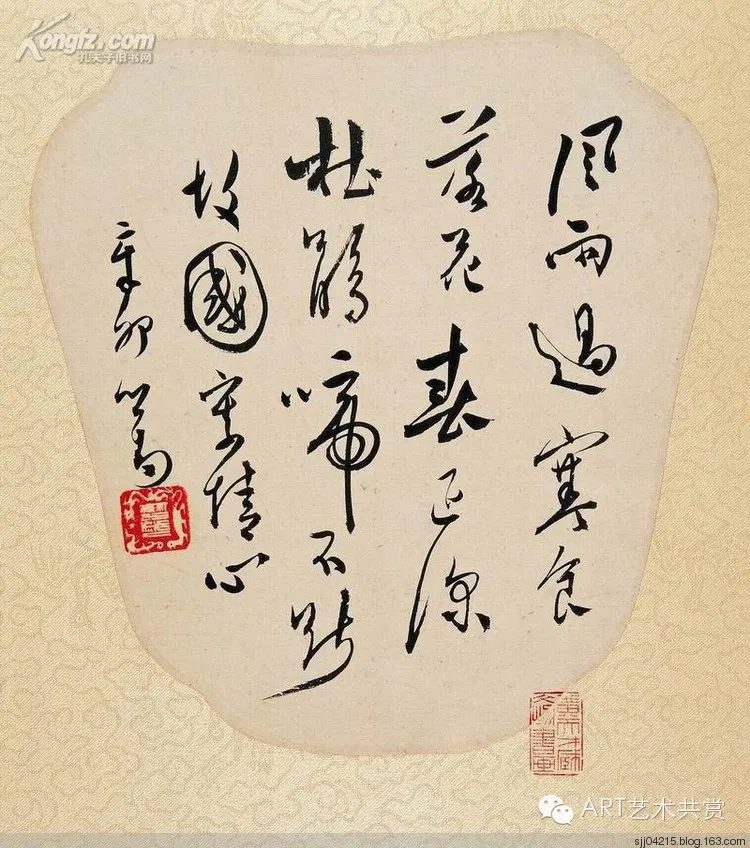 Kongfz.com
孔夫子旧书网
風雨過寒食
落花春正深
杜鵑啼不斷
故國情心
辛卯 心畬
ART艺术共赏
sjj04215.blog.163.com